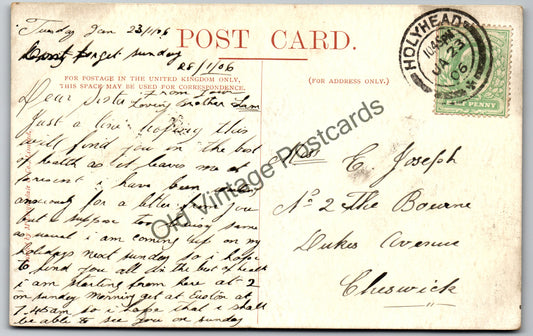 Tuesday Jan 23/1/06
Dont forget sunday
28/1/06
POST CARD.
FOR POSTAGE IN THE UNITED KINGDOM ONLY,
THIS SPACE MAY BE USED FOR CORRESPONDENCE.
(FOR ADDRESS ONLY.)
HOLYHEAD
JA 23
06
HALF PENNY
Dear Sister From your
Loving brother
Just a line hopeing this
will find you in the best
of health as it leaves me at
present i have been
anxiously for a letter from you
but i suppose too busy same
as usual i am coming up on my
holidays next sunday so i hope
to find you all in the best of health
i am starting from here at 2
on sunday morning get at Euston at
7.45 am so i hope that i shall
be able to see you on sunday
C. Joseph
No 2 The Bourne
Dukes Avenue
Cheswick
Old Vintage Postcards